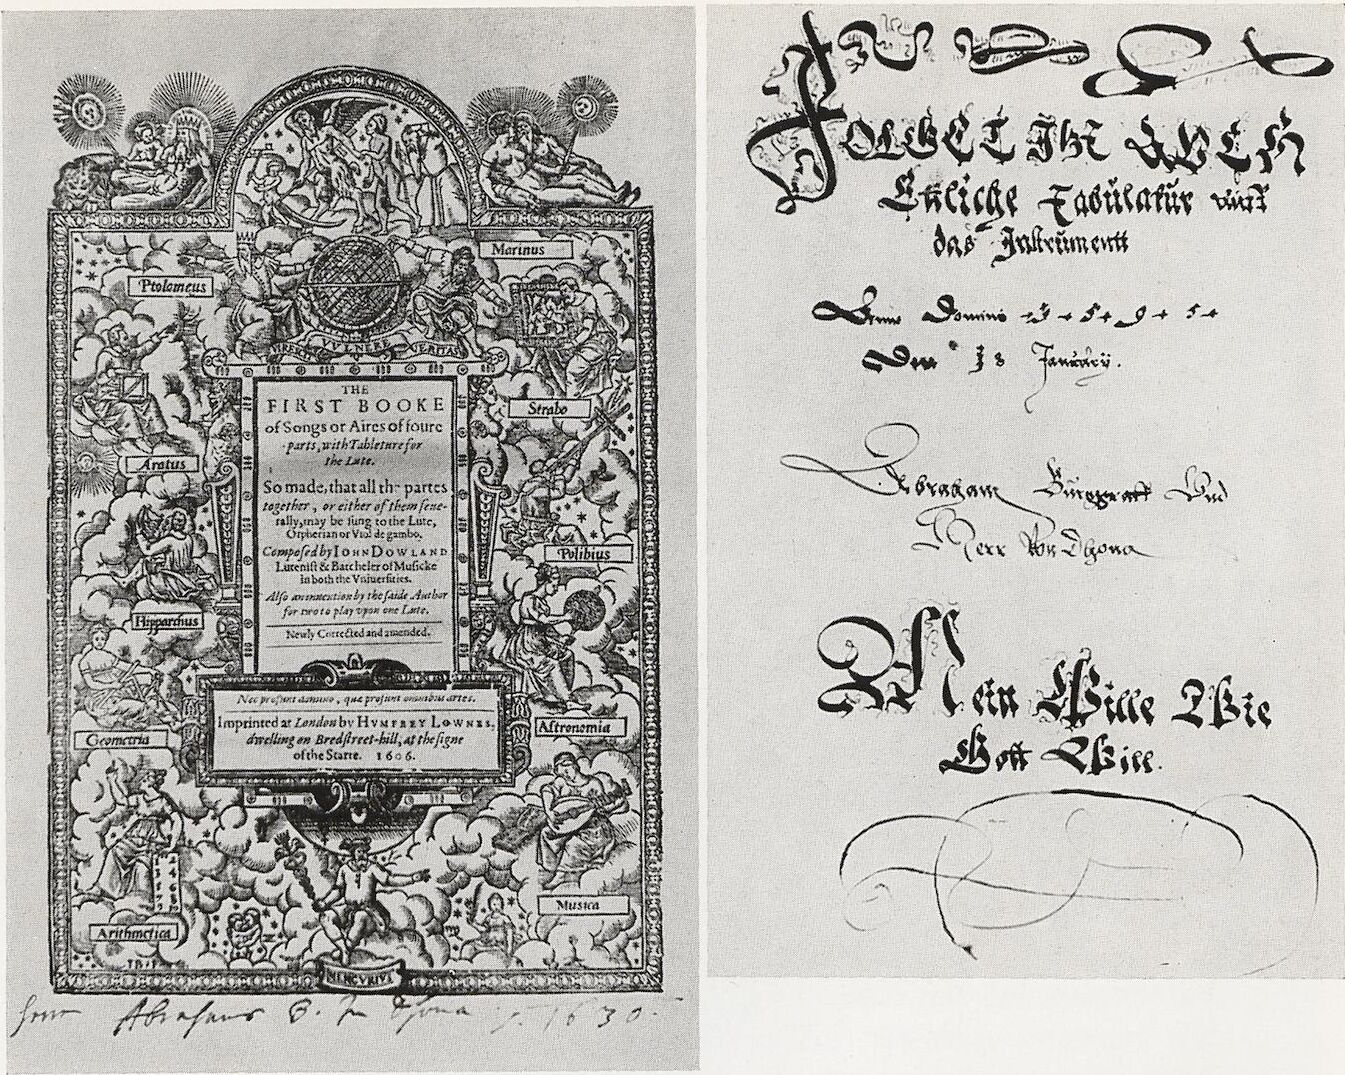 Marinus
Ptolomeus
VIVENERE VERITAS
Strabo
Aratus
Polibius
Hipparchus
Astronomia
Geometria
Musica
Arithmetica
MERCVRIVS
THE
FIRST BOOKE
of Songs or Aires of foure
parts, with Tableture for
the Lute.
So made, that all the partes
together, or either of them seue-
rally, may be sung to the Lute,
Orpherian or Viol de gambo.
Composed by IOHN DOWLAND
Lutenist & Batcheler of Musicke
in both the Vniuersities.
Also an inuention by the saide Author
for two to play vpon one Lute.
Newly Corrected and amended.
Nec prosunt domino, quæ prosunt omnibus artes.
Imprinted at London by HVMFREY LOWNES,
dwelling on Bredstreet-hill, at the signe
of the Starre. 1606.
Abraham B. Zu Dhona 1630.
FOLGET IHR
Tabulatur
das Instrument
Anno Domini 1595
Den 18 January.
Abraham Burggraff Vnd
Herr Von Dhona
Mein Wille Wie
Gott Will.